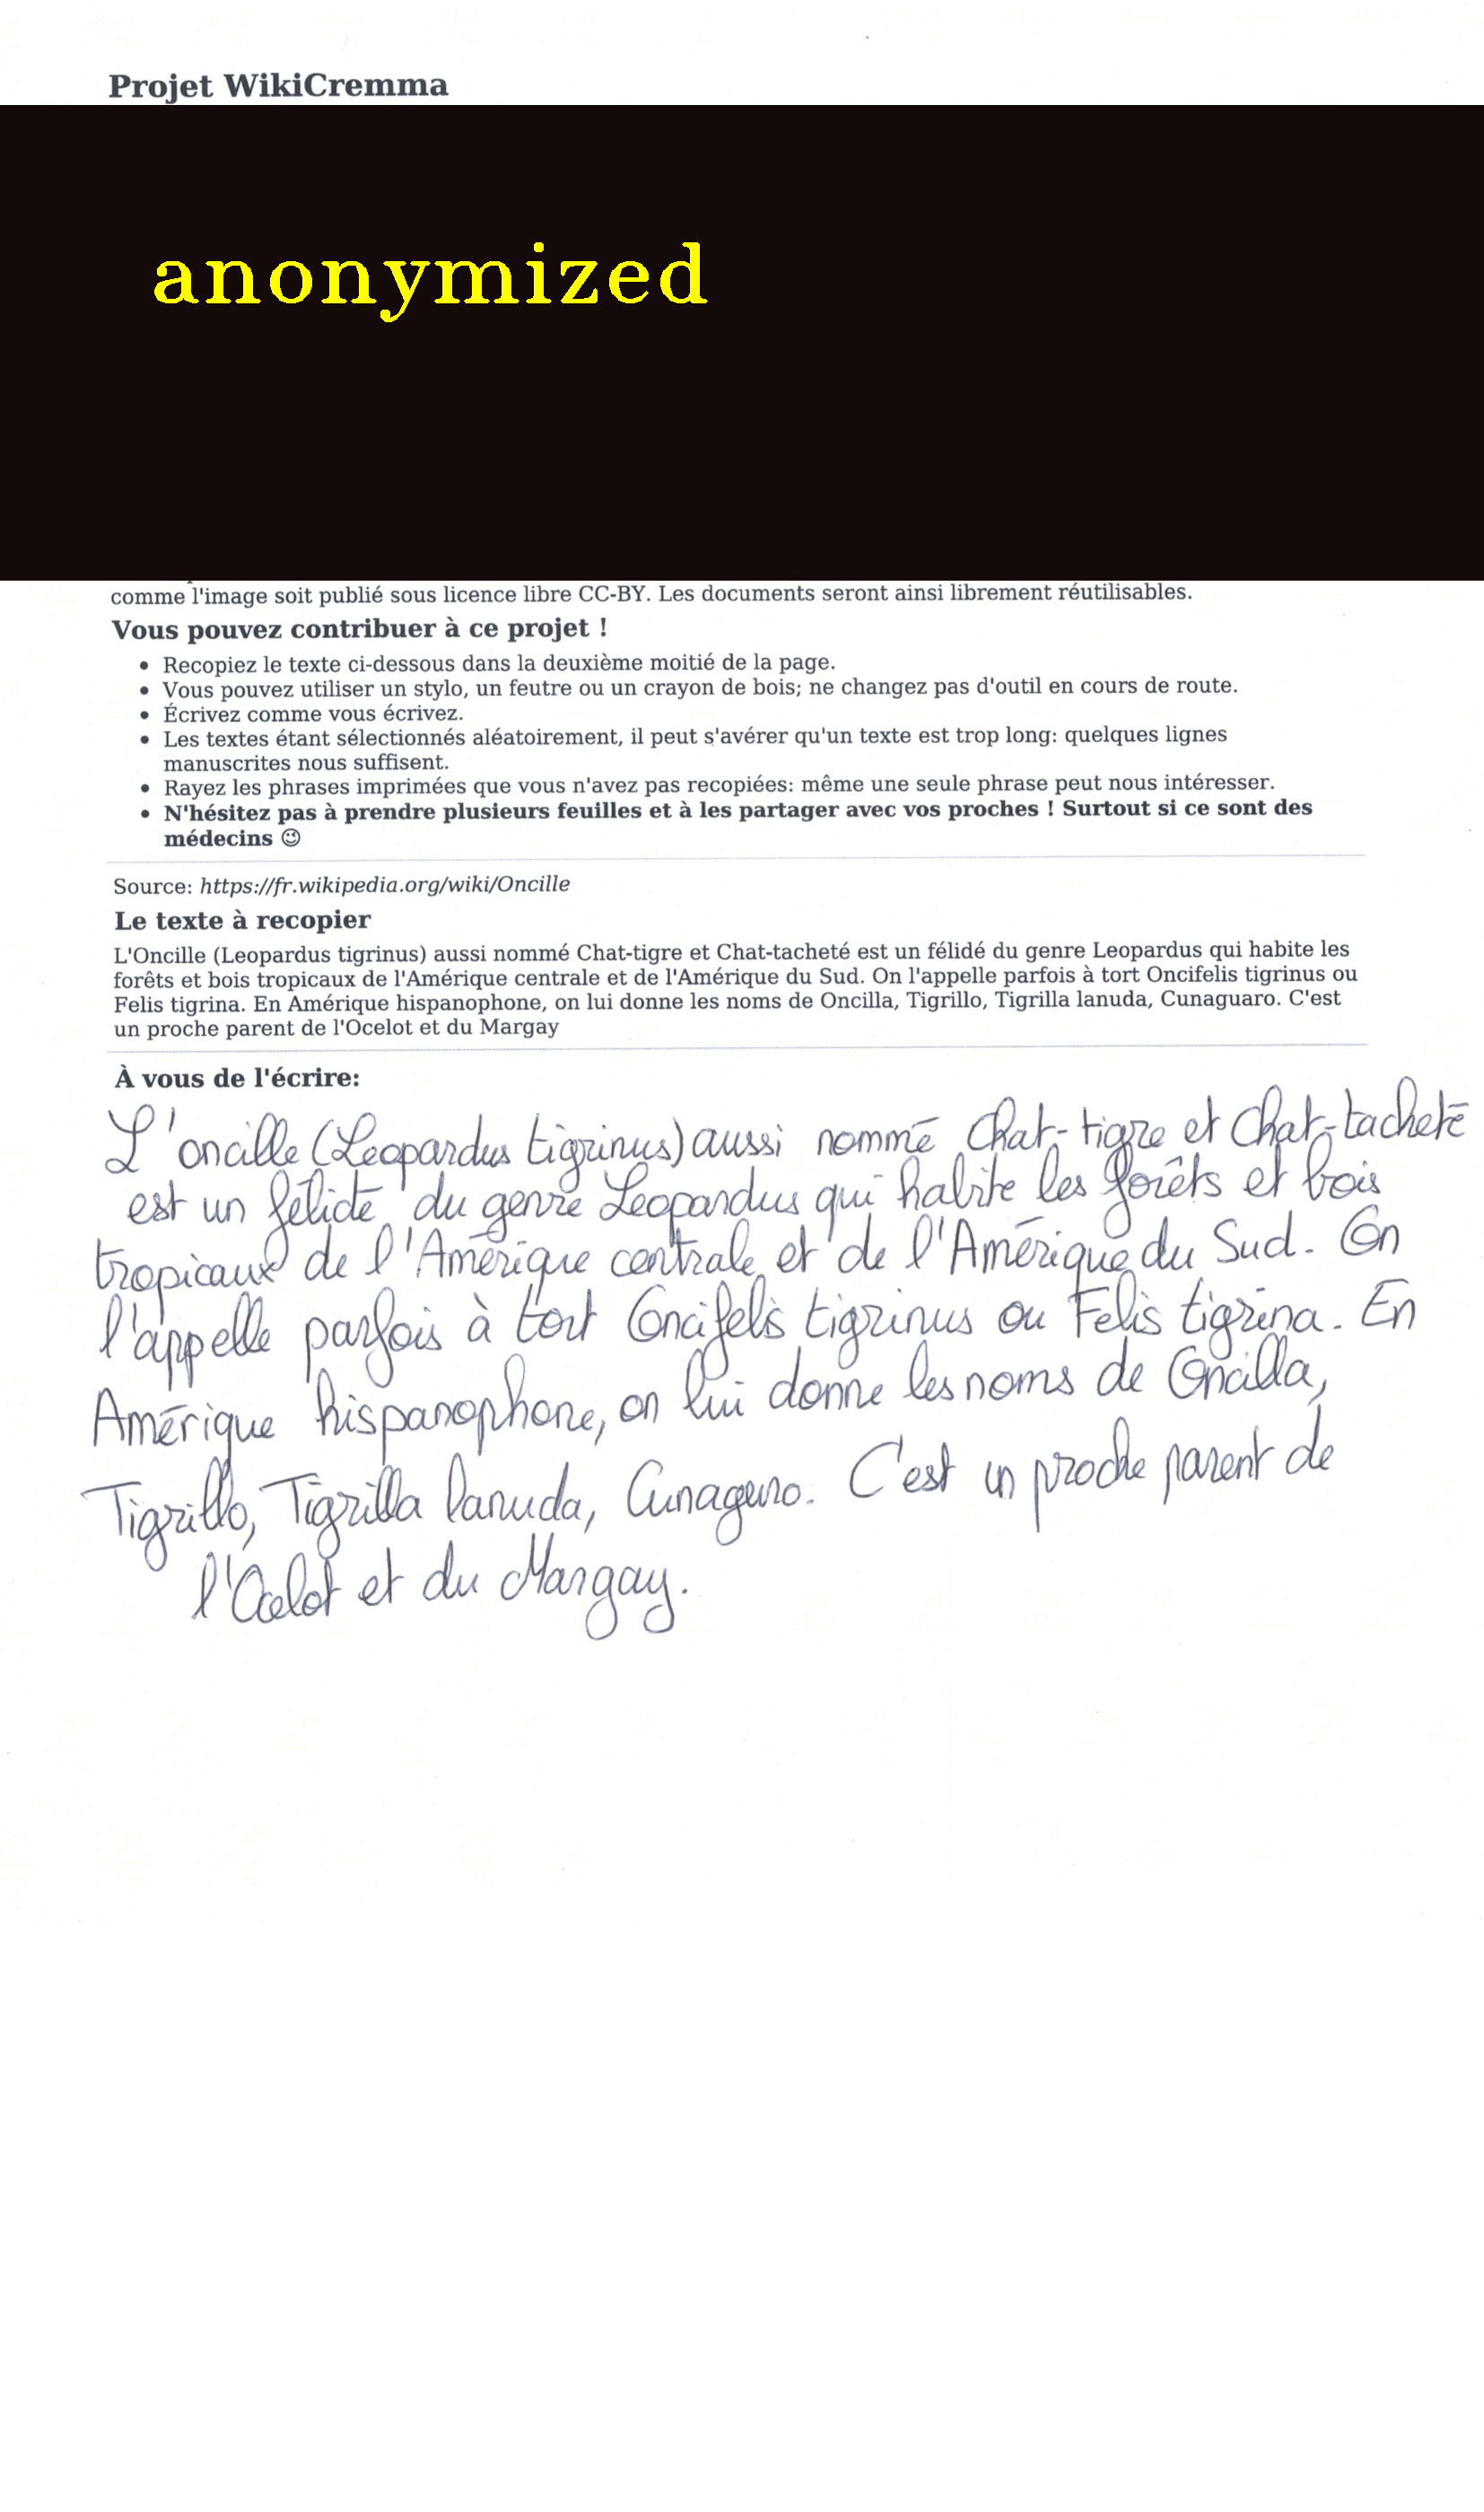 Projet WikiCremma
anonymized
comme l'image soit publié sous licence libre CC-BY. Les documents seront ainsi librement réutilisables.
Vous pouvez contribuer à ce projet !
• Recopiez le texte ci-dessous dans la deuxième moitié de la page.
• Vous pouvez utiliser un stylo, un feutre ou un crayon de bois; ne changez pas d'outil en cours de route.
• Écrivez comme vous écrivez.
• Les textes étant sélectionnés aléatoirement, il peut s'avérer qu'un texte est trop long: quelques lignes
manuscrites nous suffisent.
• Rayez les phrases imprimées que vous n'avez pas recopiées: même une seule phrase peut nous intéresser.
• N'hésitez pas à prendre plusieurs feuilles et à les partager avec vos proches ! Surtout si ce sont des
médecins 😉
Source: https://fr.wikipedia.org/wiki/Oncille
Le texte à recopier
L'Oncille (Leopardus tigrinus) aussi nommé Chat-tigre et Chat-tacheté est un félidé du genre Leopardus qui habite les
forêts et bois tropicaux de l'Amérique centrale et de l'Amérique du Sud. On l'appelle parfois à tort Oncifelis tigrinus ou
Felis tigrina. En Amérique hispanophone, on lui donne les noms de Oncilla, Tigrillo, Tigrilla lanuda, Cunaguaro. C'est
un proche parent de l'Ocelot et du Margay
À vous de l'écrire:
L'oncille (Leopardus tigrinus) aussi nommé Chat-tigre et Chat-tacheté
est un félidé du genre Leopardus qui habite les forêts et bois
tropicaux de l'Amérique centrale et de l'Amérique du Sud. On
l'appelle parfois à tort Oncifelis tigrinus ou Felis tigrina. En
Amérique hispanophone, on lui donne les noms de Oncilla,
Tigrillo, Tigrilla lanuda, Cunaguro. C'est un proche parent de
l'Ocelot et du Margay.